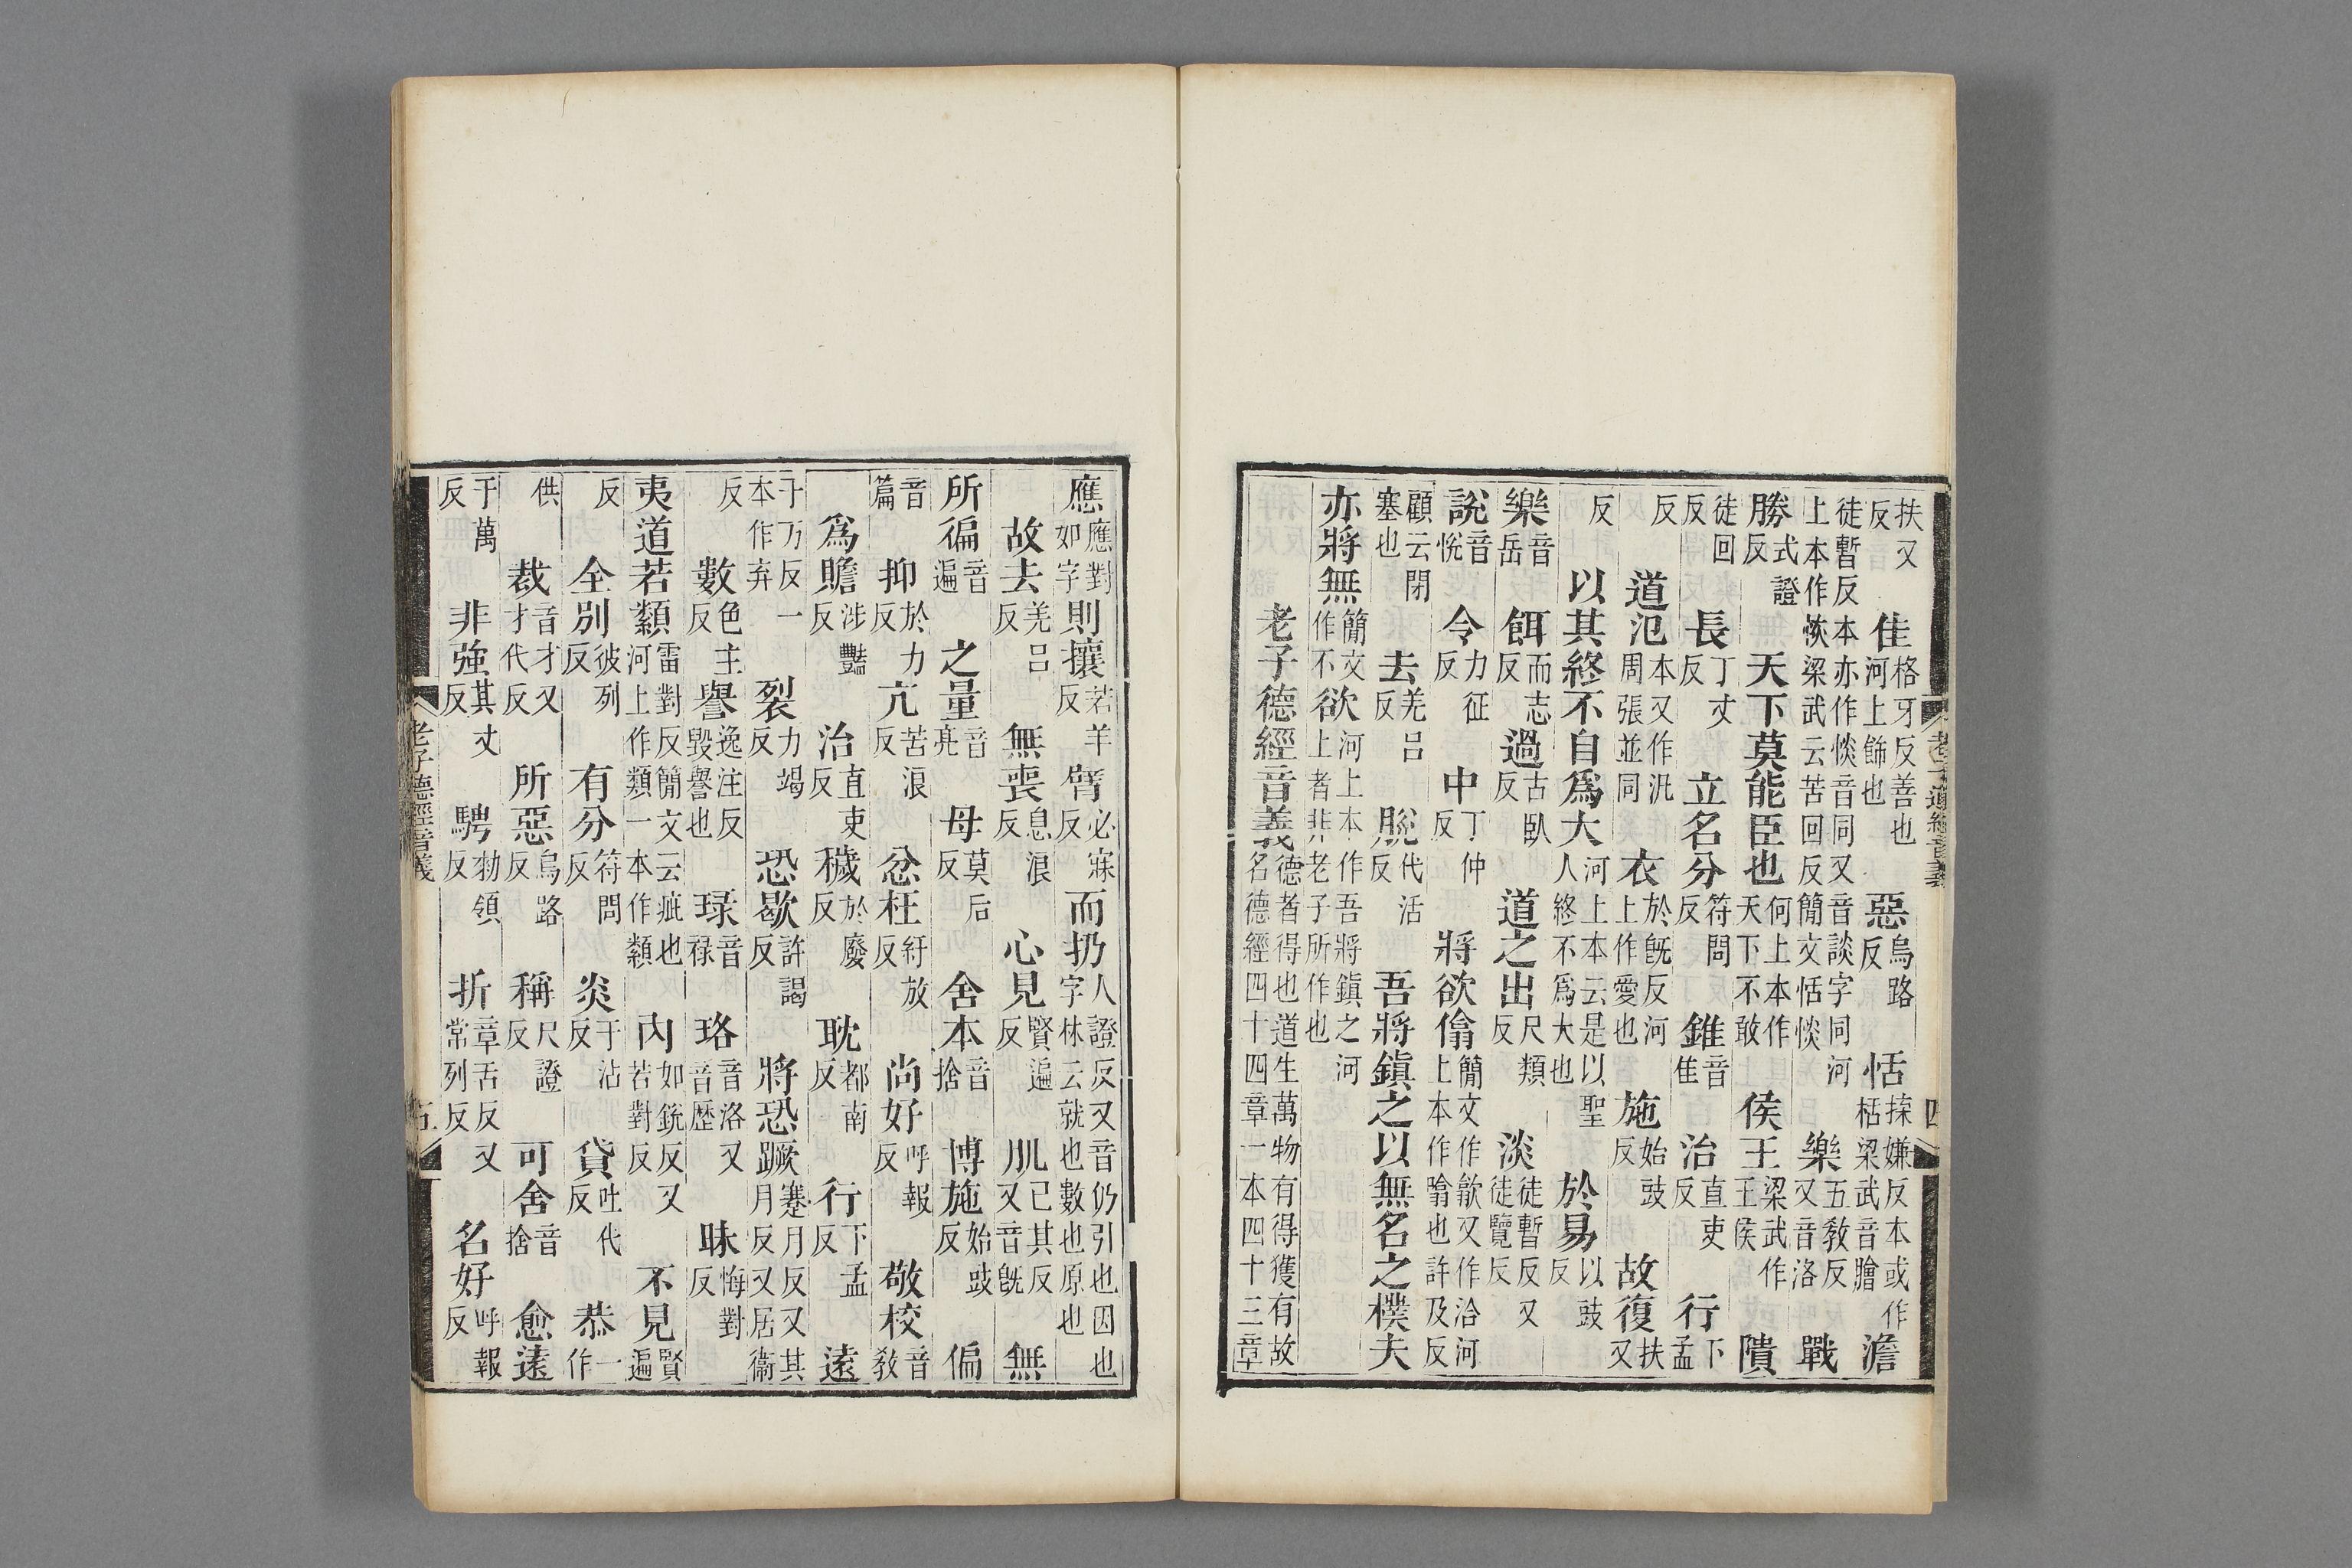 扶又反 佳格牙反善也河上飾也 惡烏路反 恬㮇嫌反本或作栝梁武音膾 澹
徒暫反本亦作惔音同又音談字同河上本作恢梁武云苦回反簡文恬惔 樂五敎反又音洛 戰
勝式證反 天下莫能臣也何上本作天下不敢 侯王梁武作王侯 隤
徒回反 長丁丈反 立名分符問反 錐音隹 治直吏反 行下孟
反 道氾本又作汎周張並同 衣於旣反河上作愛也 施始豉反 故復扶又
反 以其終不自爲大河上本云是以聖人終不爲大也 於易以豉反
樂音岳 餌而志反 過古臥反 道之出尺類反 淡徒暫反又徒覽反
說音悅 令力征反 中丁仲反 將欲㒆簡文作歙又作洽河上本作噏也許及反
顧云閉塞也 去羌呂反 脫代活反 吾將鎮之以無名之樸夫
亦將無簡文作不欲河上本作吾將鎮之河上者非老子所作也
老子德經音義德者得也道生萬物有得獲有故名德經四十四章一本四十三章
老子道經音義 四
應應對如字 則攘若羊反 臂必寐反 而扔人證反又音仍引也因也字林云就也數也原也
故去羌呂反 無喪息浪反 心見賢遍反 肌己其反又音旣 無
所徧音遍 之量音亮 母莫后反 舍本音捨 博施始豉反 偏
音篇 抑於力反 亢苦浪反 忿枉紆放反 尚好呼報反 敬校音敎
爲贍涉豔反 治直吏反 穢於廢反 耽都南反 行下孟反 遠
于万反一本作弃 裂力竭反 恐歇許謁反 將恐蹶蹇月反又其月反又居衞
反 數色主反 譽逸注反毀譽也 琭音祿 珞音洛又音歷 昧悔對反
夷道若纇雷對反簡文云疵也河上作類一本作纇 內如銳反又若對反 不見賢遍
反 全別彼列反 有分符問反 炎于沾反 貸吐代反 恭一作
供 裁音才又才代反 所惡烏路反 稱尺證反 可舍音捨 愈遠
于萬反 非強其丈反 騁勑領反 折章舌反又常列反 名好呼報反
老子德經音義 五